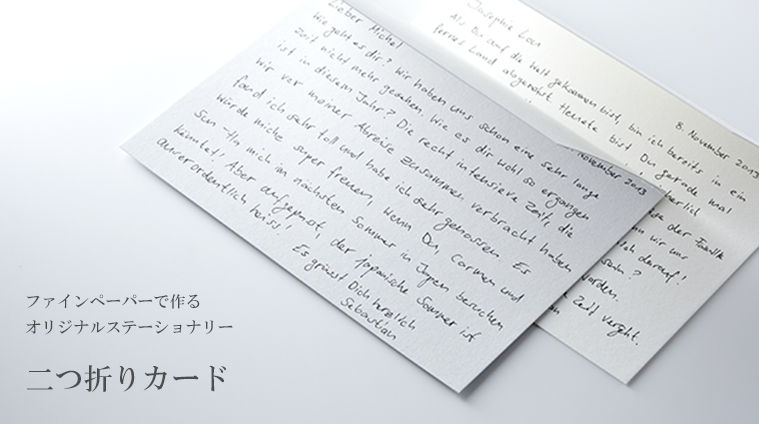 Lieber Michel
8. November 2013
Wie geht es dir? Wir haben uns schon eine sehr lange
Zeit nicht mehr gesehen. Wie es dir wohl so ergangen
ist in diesem Jahr? Die recht intensieve Zeit, die
wir vor meiner Abreise zusammen verbracht haben
fand ich sehr toll und habe ich sehr genossen. Es
würde mich super freuen, wenn Du, Carmen und
mich im nächsten Sommer in Japan besuchen
könntet! Aber aufgepasst, der japanische Sommer ist
ausserordentlich heiss!
Es grüsst Dich herzlich
Sebastian
8. November 2013
Als Du auf die Welt gekommen bist, bin ich bereits in ein
fernes Land abgereist. Heute bist Du gerade mal
der Familie
wir uns
darauf!
worden.
Zeit vergeht.
ファインペーパーで作る
オリジナルステーショナリー
二つ折りカード